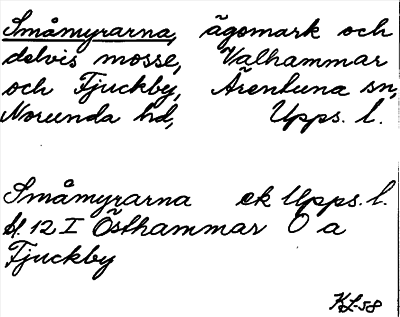 Småmyrarna, ägomark och
delvis mosse, Välhammar
och Fjuckby, Ärentuna sn,
Norunda hd, Upps. l.
Småmyrarna ek Upps. l.
bl. 12 I Östhammar O a
Fjuckby
KL-58